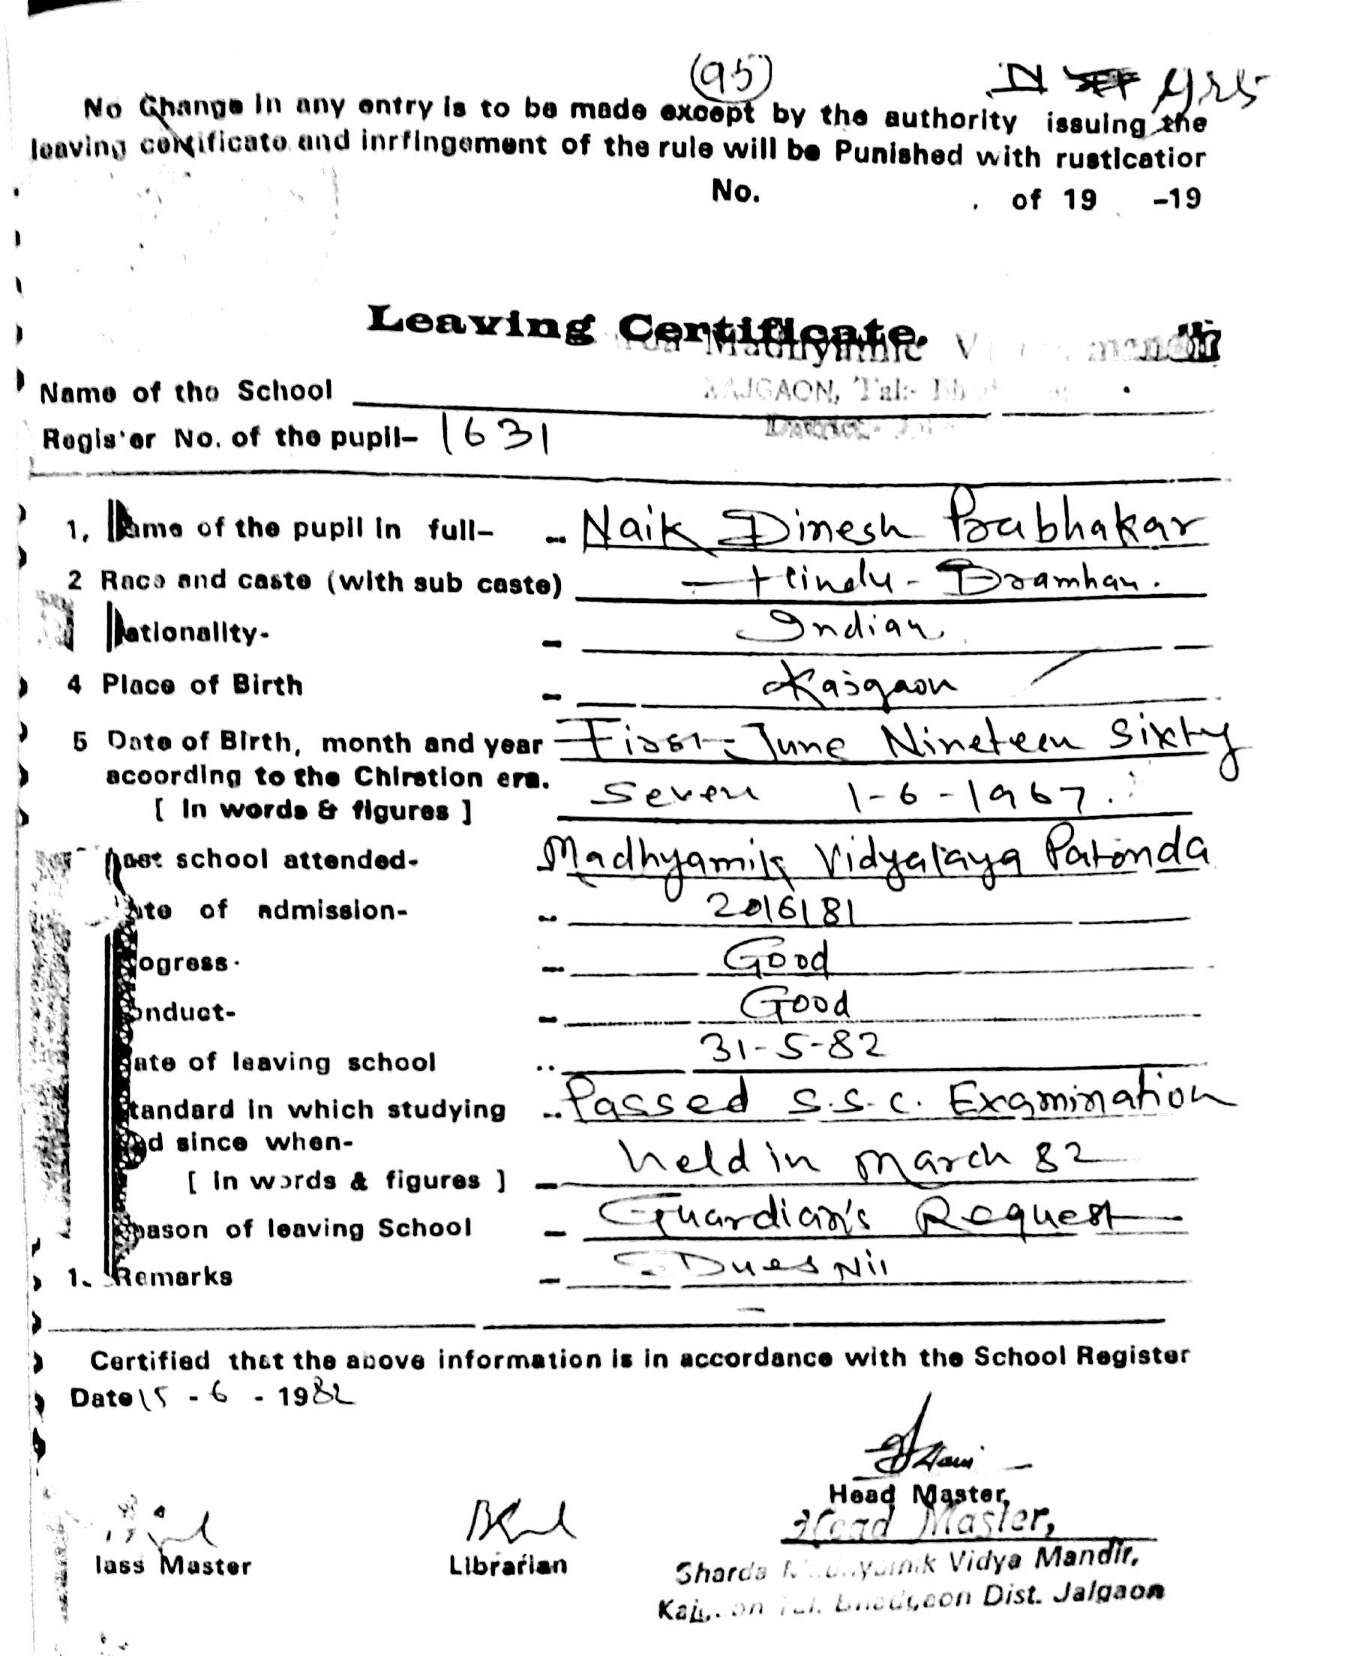 (95)
No Change in any entry is to be made except by the authority issuing the
leaving certificate and inrfingement of the rule will be Punished with rusticatior
No. of 19 -19
Leaving Certificate.
Madhyamic
Name of the School KAJGAON, Tal:-
District:-
Regis'er No. of the pupil- 1631
1, Name of the pupil in full- - Naik Dinesh Prabhakar
2 Race and caste (with sub caste) Hindu - Bramhan.
Nationality- - Indian
4 Place of Birth - Kajgaon
5 Date of Birth, month and year First June Nineteen Sixty
acoording to the Chirstion era. Seven 1-6-1967.
[ In words & figures ]
Last school attended- Madhyamik Vidyalaya Patonda
ate of admission- - 20/6/81
ogress- - Good
onduct- - Good
ate of leaving school .. 31-5-82
tandard in which studying .. Passed S.S.C. Examination
d since when- held in March 82
[ In words & figures ] -
eason of leaving School - Guardian's Request
1. Remarks - Dues Nil
Certified that the above information is in accordance with the School Register
Date 15 - 6 - 1982
Head Master,
Head Master,
lass Master Librarian
Sharda Vidya Mandir,
Dist. Jalgaon